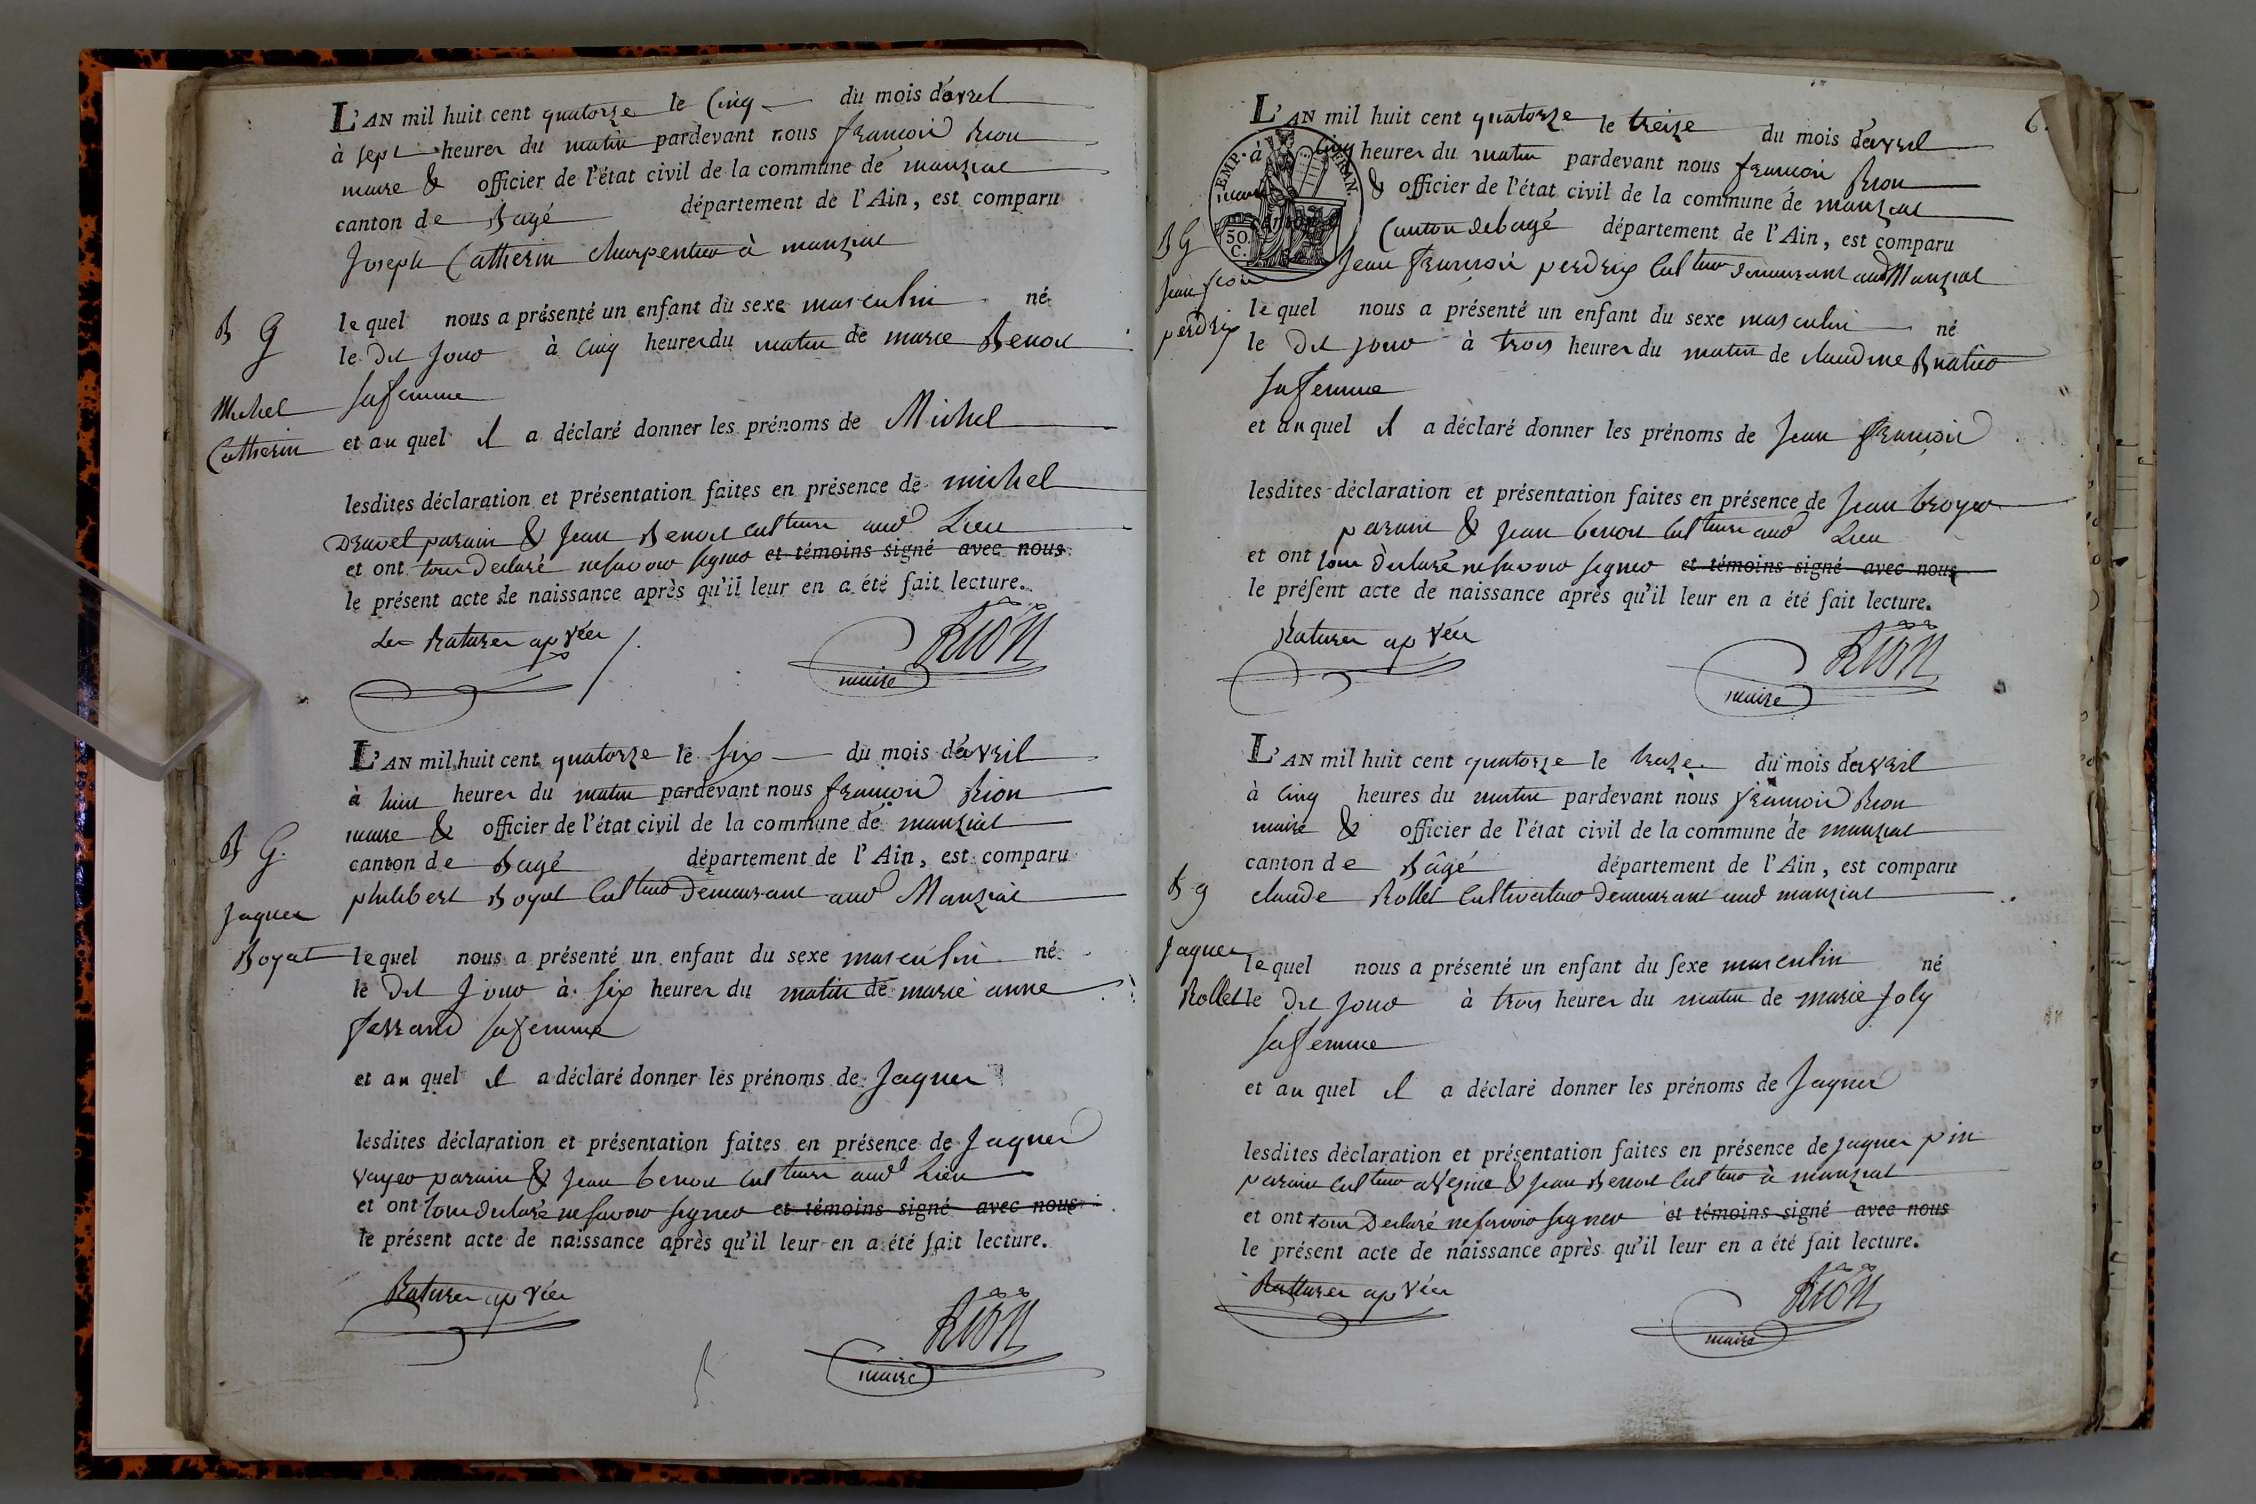 L'AN mil huit cent quatorze le Cinq du mois d'avril
à sept heures du matin pardevant nous françois Rion
maire & officier de l'état civil de la commune de manziat
canton de Bagé département de l'Ain, est comparu
Joseph Catherin charpentier à manziat
B G
lequel nous a présenté un enfant du sexe masculin né
le dit jour à cinq heures du matin de marie Benoit
sa femme
Michel
Catherin
et au quel il a déclaré donner les prénoms de Michel
lesdites déclaration et présentation faites en présence de michel
Dravel parain & Jean Benoit cultiv aud Lieu
et ont tous déclaré ne savoir signer et témoins signé avec nous
le présent acte de naissance après qu'il leur en a été fait lecture.
Les Ratures ap vées
Rion
maire
L'AN mil huit cent quatorze le six du mois d'avril
à huit heures du matin pardevant nous françois Rion
maire & officier de l'état civil de la commune de manziat
B G.
canton de Bagé département de l'Ain, est comparu
philibert Boyat Cultiv demeurant aud Manziat
Jaques
Boyat
lequel nous a présenté un enfant du sexe masculin né
le dit Jour à six heures du matin de marie anne
ferrand sa femme
et au quel il a déclaré donner les prénoms de Jaques
lesdites déclaration et présentation faites en présence de Jaques
Vayer parain & Jean benoit cultiv aud Lieu
et ont tous déclaré ne savoir signer et témoins signé avec nous
le présent acte de naissance après qu'il leur en a été fait lecture.
Ratures ap vées
Rion
maire
6.
L'AN mil huit cent quatorze le treize du mois d'avril
à cinq heures du matin pardevant nous françois Rion
maire & officier de l'état civil de la commune de manziat
EMP. FRAN.
50.
C.
Canton de bagé département de l'Ain, est comparu
B G
Jean françois perdrix Cultiv demeurant aud Manziat
Jean fcois
perdrix
lequel nous a présenté un enfant du sexe masculin né
le dit jour à trois heures du matin de claudine
sa femme
et au quel il a déclaré donner les prénoms de Jean françois
lesdites déclaration et présentation faites en présence de Jean broyer
parain & Jean benoit cultiv aud Lieu
et ont tous déclaré ne savoir signer et témoins signé avec nous
le présent acte de naissance après qu'il leur en a été fait lecture.
Ratures ap vées
Rion
maire
L'AN mil huit cent quatorze le treize du mois d'avril
à cinq heures du matin pardevant nous françois Rion
maire & officier de l'état civil de la commune de manziat
canton de Bâgé département de l'Ain, est comparu
B g
claude Rollet Cultivateur demeurant aud manziat
Jaques
Rollet
lequel nous a présenté un enfant du sexe masculin né
le dit jour à trois heures du matin de marie Joly
sa femme
et au quel il a déclaré donner les prénoms de Jaques
lesdites déclaration et présentation faites en présence de Jaques pin
parain cultiv à Vezine & Jean Benoit Cultiv à manziat
et ont tous déclaré ne savoir signer et témoins signé avec nous
le présent acte de naissance après qu'il leur en a été fait lecture.
Rattures ap vées
Rion
maire